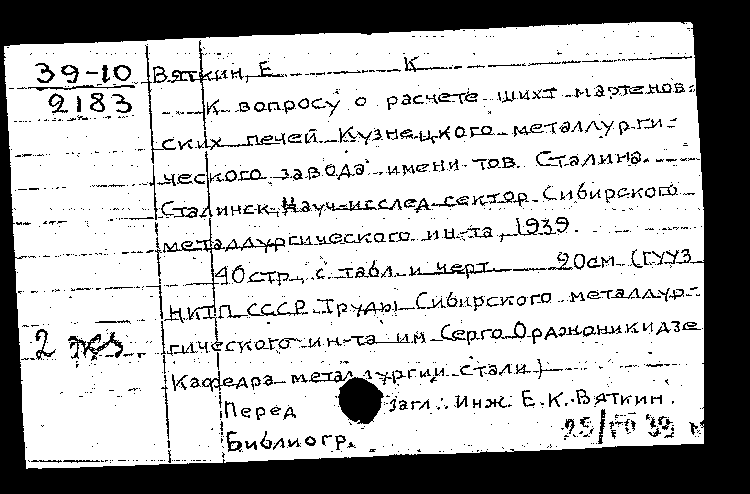 39-10
2183
Вяткин, Е К
К вопросу о расчете шихт мартенов-
ских печей Кузнецкого металлурги-
ческого завода имени тов. Сталина.
Сталинск, Науч-исслед. сектор Сибирского
металлургического ин-та, 1939.
40 стр., с табл. и черт. 20 см (ГУУЗ
НКТП СССР. Труды Сибирского металлур-
гического ин-та им Серго Орджоникидзе
2 экз.
Кафедра металлургии стали)
Перед загл.: Инж. Е. К. Вяткин.
Библиогр.